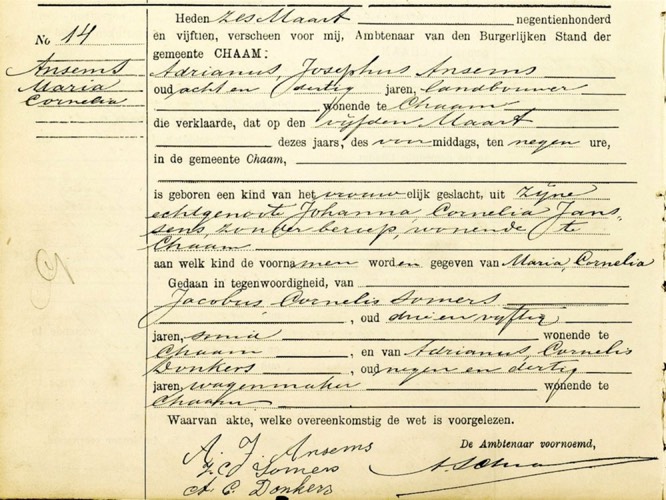 No 14
Ansems
Maria
Cornelia
Heden zes Maart negentienhonderd
en vijftien, verscheen voor mij, Ambtenaar van den Burgerlijken Stand der
gemeente CHAAM:
Adrianus Josephus Ansems
oud acht en dertig jaren, landbouwer
wonende te Chaam
die verklaarde, dat op den vijfden Maart
dezes jaars, des voormiddags, ten negen ure,
in de gemeente Chaam,
is geboren een kind van het vrouwelijk geslacht, uit zijne
echtgenoote Johanna, Cornelia Jans-
sens, zonder beroep, wonende te
Chaam
aan welk kind de voornamen worden gegeven van Maria, Cornelia
Gedaan in tegenwoordigheid, van
Jacobus, Cornelis Somers
, oud drie en vijftig
jaren, smid wonende te
Chaam , en van Adrianus, Cornelis
Donkers , oud negen en dertig
jaren, wagenmaker wonende te
Chaam
Waarvan akte, welke overeenkomstig de wet is voorgelezen.
A. J. Ansems
J. C. Somers
A C. Donkers
De Ambtenaar voornoemd,